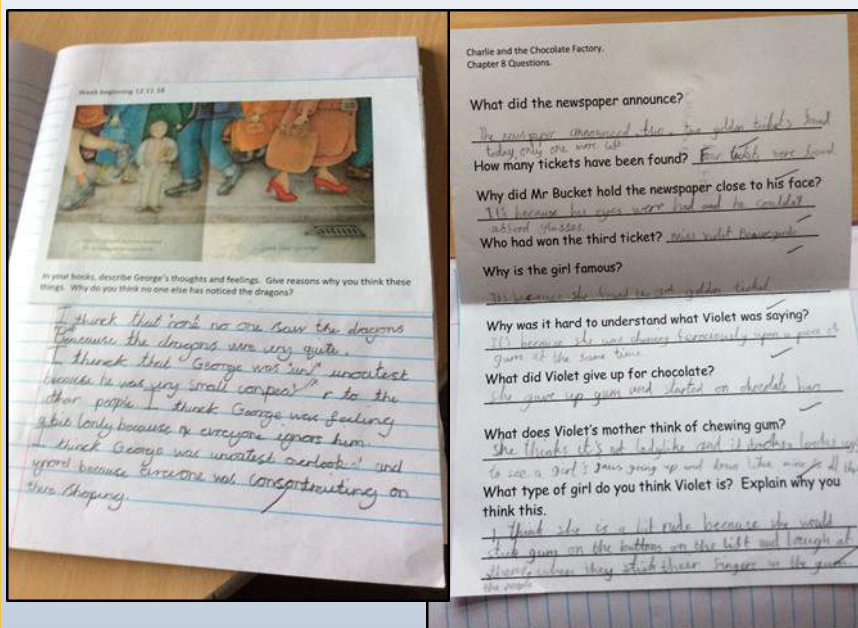 Week beginning 12.11.18
In your books, describe George's thoughts and feelings. Give reasons why you think these
things. Why do you think no one else has noticed the dragons?
I thinck that no one saw the dragons
Because the dragons were very quite.
I thinck that George was unoutest
because he was very small to the
other people. I thinck George was feeling
a bit lonly because everyone ignors him.
I thinck George was unoutest and
ignord because was on
there shoping.
Charlie and the Chocolate Factory.
Chapter 8 Questions.
What did the newspaper announce?
The newspaper announced, two golden tickets found
today, only one more left
How many tickets have been found? Four tickets were found.
Why did Mr Bucket hold the newspaper close to his face?
It's because his eyes were bad and he couldn't
afford glasses.
Who had won the third ticket? Miss Violet
Why is the girl famous?
It's because she found golden ticket
Why was it hard to understand what Violet was saying?
It's because she was chewing ferociously upon a piece of
gum at the same time.
What did Violet give up for chocolate?
She gave up gum and started on chocolate bars
What does Violet's mother think of chewing gum?
She thinks it's not ladylike and it
to see a girl's jaws going up and down like mine all the
What type of girl do you think Violet is? Explain why you
think this.
I think she is a bit rude because she would
stick gum on the buttons on the lift and laugh at
them, when they stick their fingers in the gum.
the people